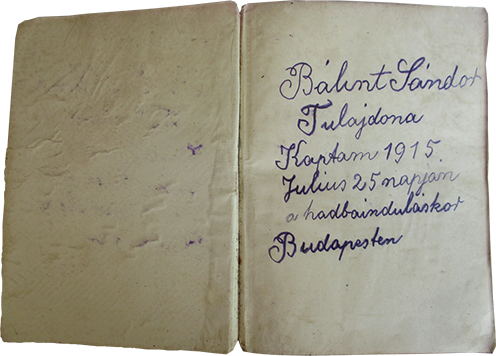 Bálint Sándor
Tulajdona
Kaptam 1915.
Julius 25 napján
a hadbainduláskor
Budapesten